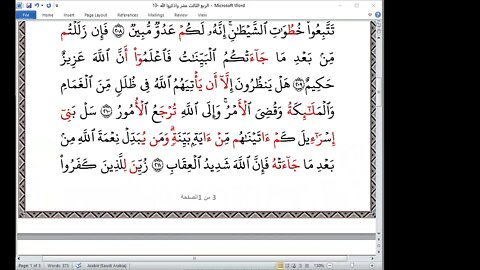 الربع الثالث عشر واذكروا الله -13 - Microsoft Word
تَتَّبِعُوا۟ خُطُوَٰتِ ٱلشَّيْطَٰنِ ۚ إِنَّهُۥ لَكُمْ عَدُوٌّ مُّبِينٌ ٢٠٨ فَإِن زَلَلْتُم
مِّنۢ بَعْدِ مَا جَآءَتْكُمُ ٱلْبَيِّنَٰتُ فَٱعْلَمُوٓا۟ أَنَّ ٱللَّهَ عَزِيزٌ
حَكِيمٌ ٢٠٩ هَلْ يَنظُرُونَ إِلَّآ أَن يَأْتِيَهُمُ ٱللَّهُ فِى ظُلَلٍ مِّنَ ٱلْغَمَامِ
وَٱلْمَلَٰٓئِكَةُ وَقُضِىَ ٱلْأَمْرُ ۚ وَإِلَى ٱللَّهِ تُرْجَعُ ٱلْأُمُورُ ٢١٠ سَلْ بَنِىٓ
إِسْرَٰٓءِيلَ كَمْ ءَاتَيْنَٰهُم مِّنْ ءَايَةٍۭ بَيِّنَةٍ ۗ وَمَن يُبَدِّلْ نِعْمَةَ ٱللَّهِ مِنۢ
بَعْدِ مَا جَآءَتْهُ فَإِنَّ ٱللَّهَ شَدِيدُ ٱلْعِقَابِ ٢١١ زُيِّنَ لِلَّذِينَ كَفَرُوا۟
3 من 1الصفحة
Page: 1 of 3 Words: 375 Arabic (Saudi Arabia) 130%